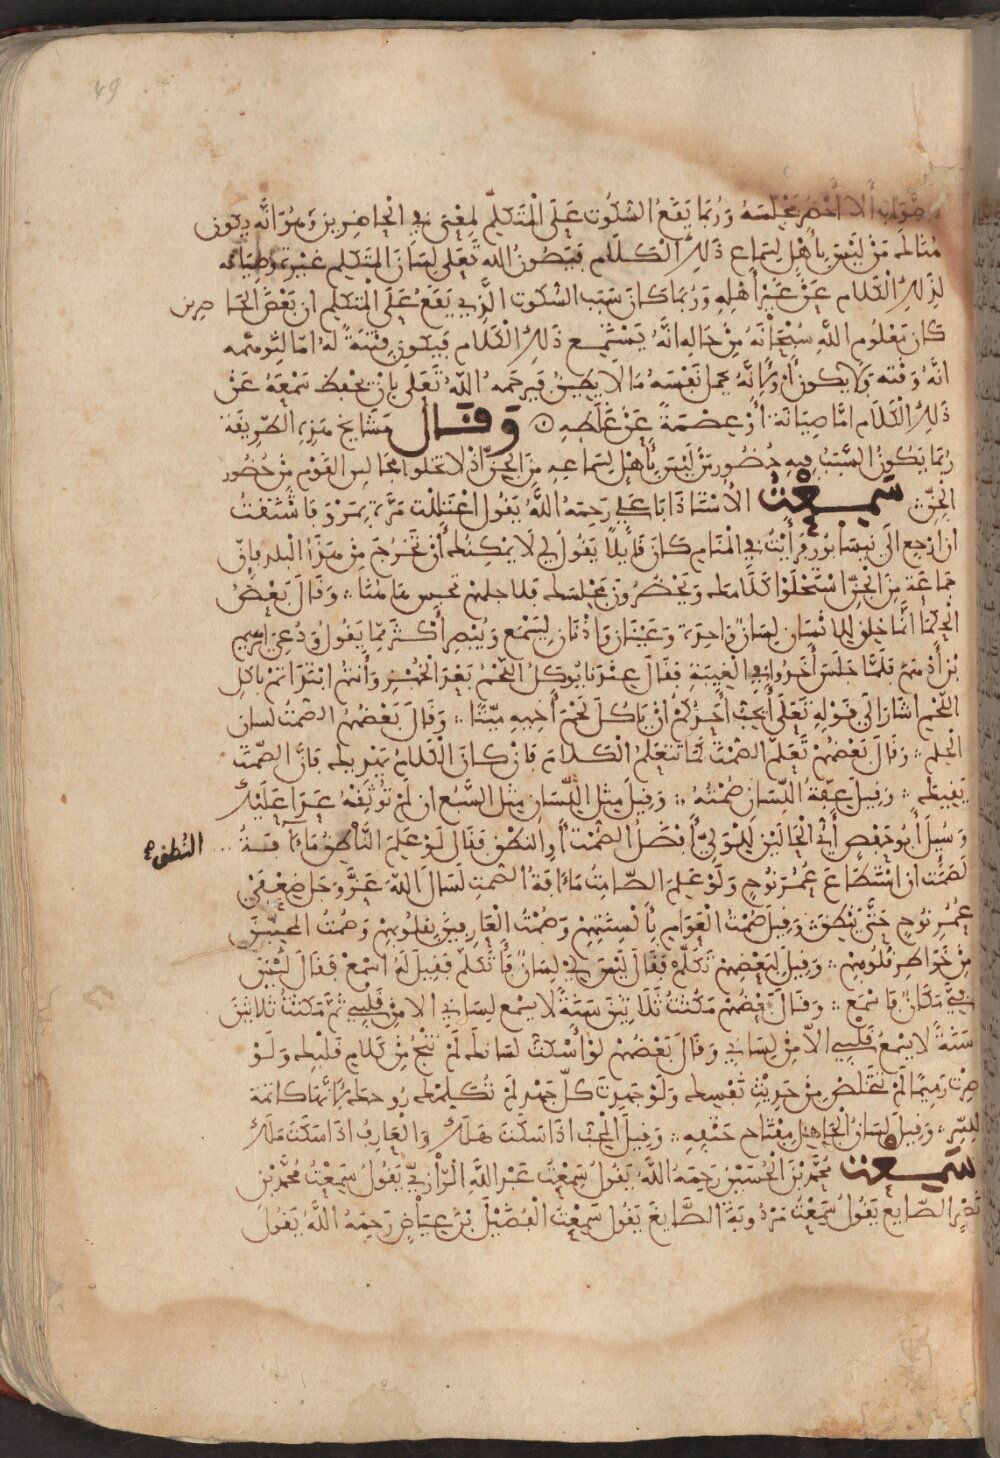 49
صواب ألا أحضر مجلسه وربما يقع السكوت على المتكلم لمعنى في الحاضرين وهو انه يكون
هناك من ليس بأهل لسماع ذلك الكلام فيصون الله تعلى لسان المتكلم غيرة وصيانة
لذلك الكلام عن غير أهله وربما كان سبب السكوت الذي يقع على المتكلم ان بعض الحا ضرين
كان معلوم الله سبحانه من حاله انه يستمع ذلك الكلام فيكون فتنة له اما لتوهمه
انه وقته ولا يكون أو لأنه يحمل نفسه ما لا يطيق فيرحمه الله تعلى بان يحفظ سمعه عن
ذلك الكلام اما صيانة أو عصمة عن غلطه وقال مشايخ هذه الطريقة
ربما يكون السبب فيه حضور من ليس بأهل لسماعه من الجن اذ لا تخلوا مجالس القوم من حضور
الجن سمعت الأستاذ ابا علي رحمه الله يقول اعتللت مرة بمرو فاشتقت
ان ارجع الى نيسابور فرأيت في المنام كان قايلا يقول لي لا يمكنك أن تخرج من هذا البلد فإن
جماعة من الجن استحلوا كلامك ويحضرون مجلسك فلاجلهم تحبس هاهنا وقال بعض
الحكما انما خلق للانسان لسان واحد وعينان وأذنان ليسمع ويبصر أكثر مما يقول ودعي ابرهيم
بن أدهم فلما جلس أخذوا في الغيبة فقال عندنا يوكل اللحم بعد الخبز وأنتم ابتدأتم باكل
اللحم اشار الى قوله تعلى أيحب أحدكم ان ياكل لحم أخيه ميتا وقال بعضهم الصمت لسان
الحلم وقال بعضهم تعلم الصمت كما تتعلم الكلام فان كان الكلام يهديك فان الصمت
يقيك وقيل عفة اللسان صمته وقيل مثل اللسان مثل السبع ان لم توثقه عدا عليك
وسيل أبو حفص أي الحالين للولي أفضل الصمت أو النطق فقال لو علم الناطق ما آفة
النطق
لصمت ان استطاع عمر نوح ولو علم الصامت ما آفة الصمت لسال الله عز وجل ضعفي
عمر نوح حتى ينطق وقيل صمت العوام بألسنتهم وصمت العارفين بقلوبهم وصمت المحبين
من خواطر قلوبهم وقيل لبعضهم تكلم فقال ليس لي لسان فأتكلم فقيل له اسمع فقال ليس
في مكان فاسمع وقال بعضهم مكثت ثلاثين سنة لا يسمع لساني الا من قلبي ثم مكثت ثلاثين
سنة لا يسمع قلبي الا من لساني وقال بعضهم لو أسكت لسانك لم تنج من كلام قلبك ولو
صرت رميما لم تتخلص من حديث نفسك ولو جهدت كل جهد لم تكلمك روحك لأنها كاتمة
للسر وقيل لسان الجاهل مفتاح حتفه وقيل المحب اذا سكت هلك والعارف اذا سكت ملك
سمعت محمد بن الحسين رحمه الله يقول سمعت عبد الله الرازي يقول سمعت محمد بن
نصر الصايغ يقول سمعت مردوية الصايغ يقول سمعت الفضيل بن عياض رحمه الله يقول